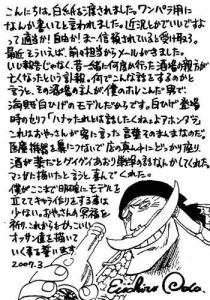 こんにちは。白紙を渡されました。ワンパラ用に
なんか書いてと言われました。近況とかでいいですよ
って適当か!自由か!まー信頼されてると受け取ろう。
最近そういえば、前の担当からメールがきました。
いい報告じゃなく、昔一緒に何度か行った酒場の親方が
亡くなったという訃報。何でこんな話をするのかと
言うと、その酒場のまんが僕のおトこんだ男で
海賊 白ひげのモデルだからです。白ひげ登場
時のセリフ「ハナったれとは話してくれねェよアホンダラ」
これはおやっさんが客に言った言葉そのまんまなのだ。
医療機器を鼻につないで店の真ん中にどっかり座り、
酒が薬だとグイグイあおり豪快な話なんかしてくれた。
マンガに描いたと言うと喜んでくれた。
僕がここまで明確にモデルを
立ててキャラ作りをする事は
少ない。おやっさんの冥福を
祈り、これからもかっこいい
オッサン達を描いて
いく事を誓います。
2007.3
Eiichiro Oda.